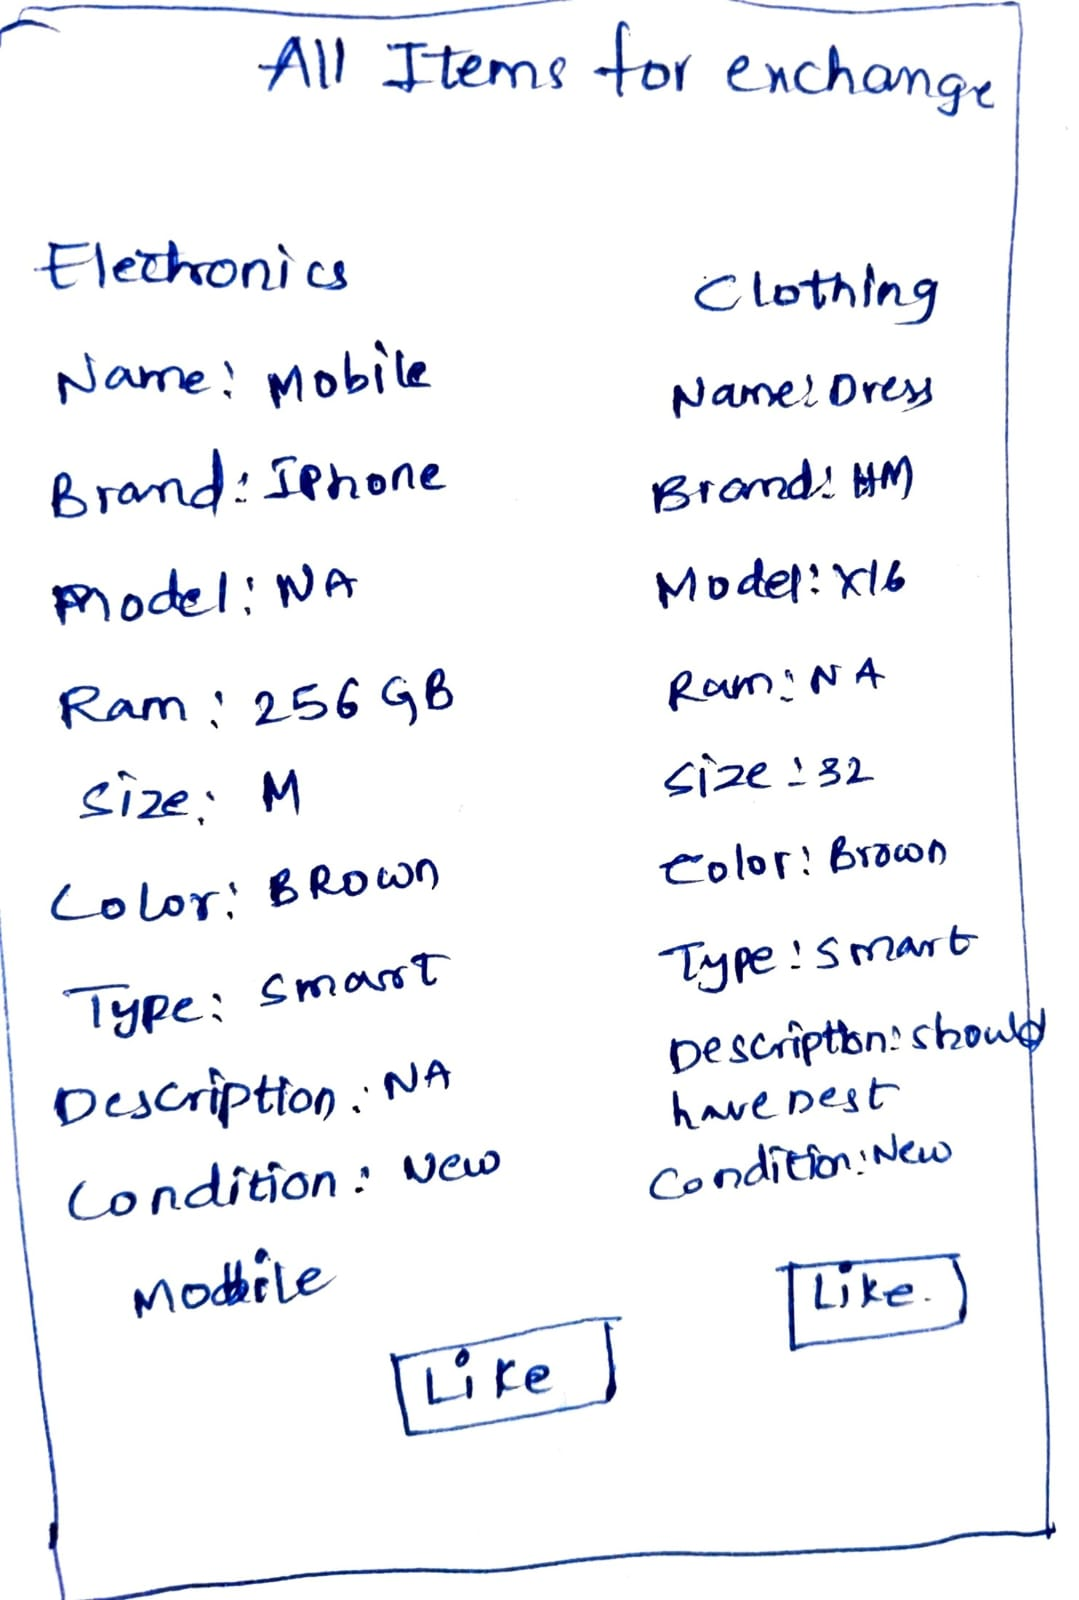 All Items for exchange
Electronics
Name: Mobile
Brand: IPhone
Model: NA
Ram: 256 GB
Size: M
Color: BROWN
Type: Smart
Description: NA
Condition: New
Mobile
Like
Clothing
Name: Dress
Brand: HM
Model: X16
Ram: NA
Size: 32
Color: Brown
Type: Smart
Description: should
have Dest
Condition: New
Like.